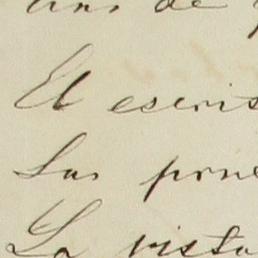 de
El escris
Las prue
La vista